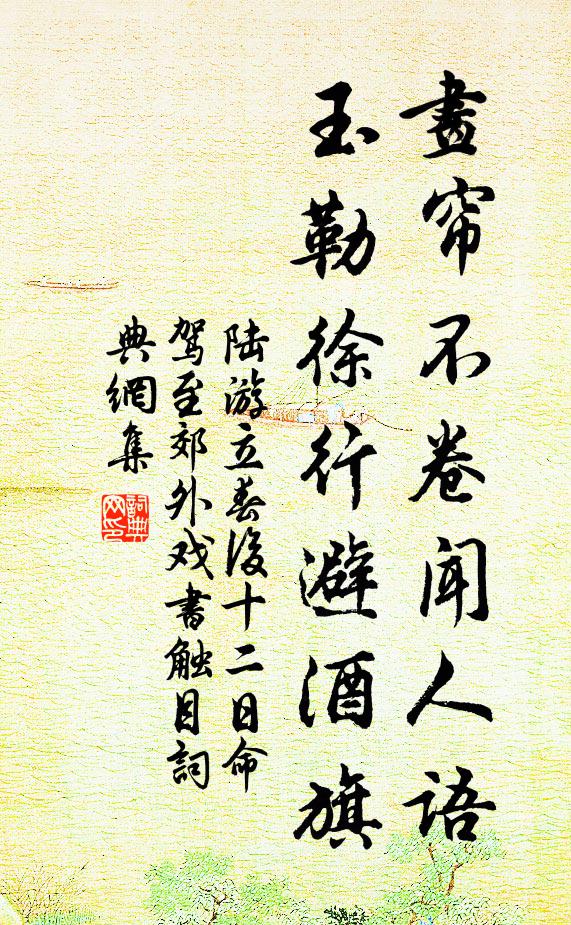 畫帘不卷聞人語
玉勒徐行避酒旗
陆游立春後十二日命
驾至郊外戏書触目詞
典網集
詞典网印